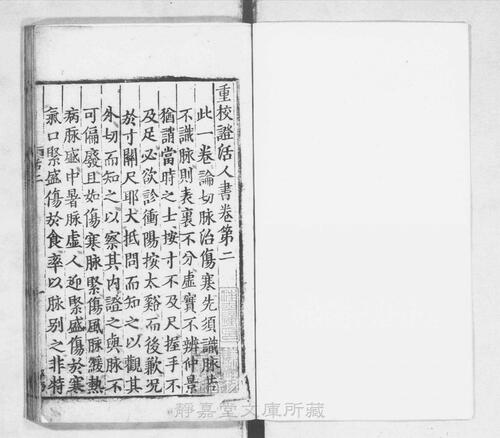 重校證活人書卷第二
此一卷論切脉治傷寒先須識脉若
不識脉則表裏不分虛實不辨仲景
猶誚當時之士按寸不及尺握手不
及足必欲診衝陽按太谿而後歎況
於寸關尺耶大抵問而知之以觀其
外切而知之以察其內證之與脉不
可偏廢且如傷寒脉緊傷風脉緩熱
病脉盛中暑脉虛人迎緊盛傷於寒
氣口緊盛傷於食率以脉别之非特
靜嘉堂文庫所藏